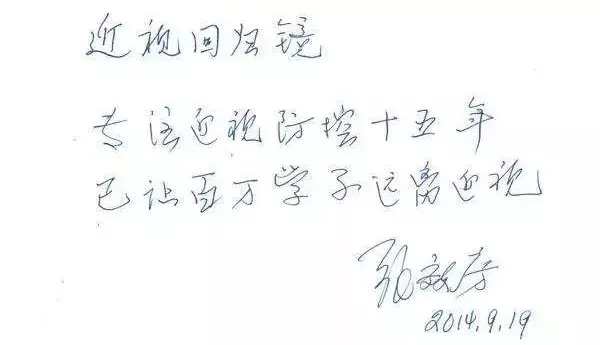 近视回归镜
专注近视防控十五年
已让百万学子远离近视
张效房
2014.9.19